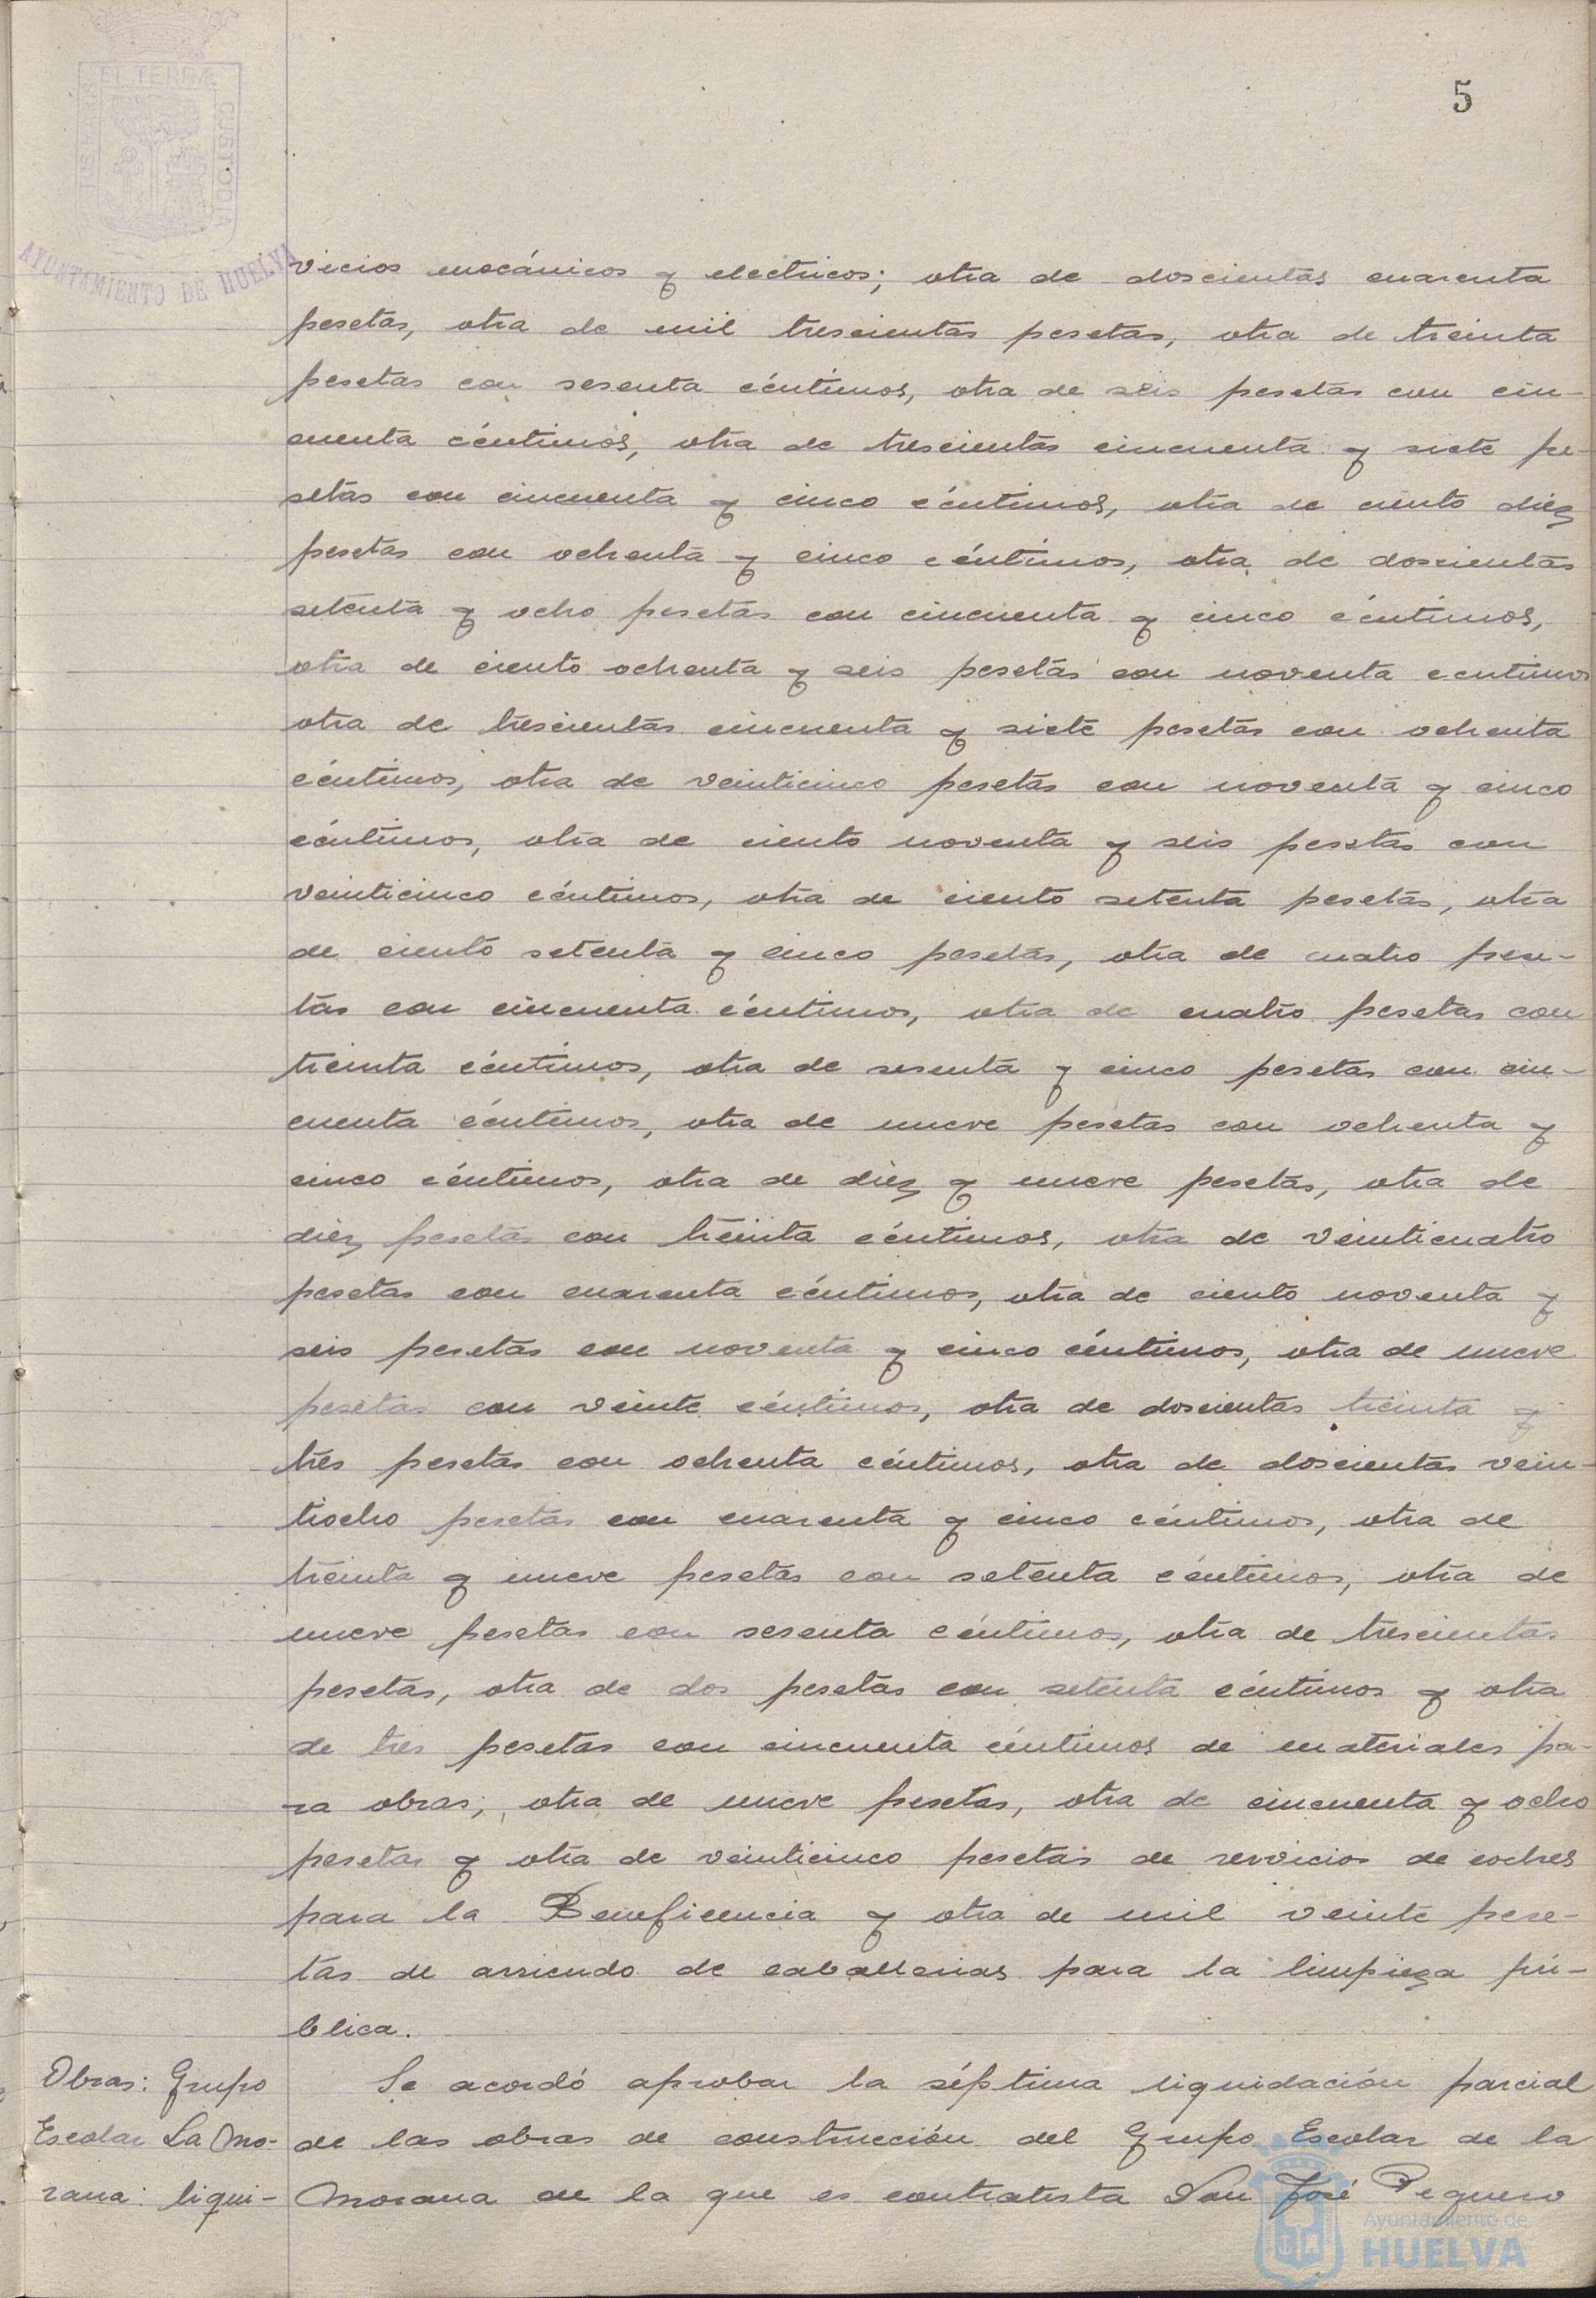 5
PORTUS MARIS ET TERRAE CUSTODIA
AYUNTAMIENTO DE HUELVA
vicios mecánicos y electricos; otra de doscientas cuarenta
pesetas, otra de mil trescientas pesetas, otra de treinta
pesetas con sesenta céntimos, otra de seis pesetas con cin-
cuenta céntimos, otra de trescientas cincuenta y siete pe-
setas con cincuenta y cinco céntimos, otra de ciento diez
pesetas con ochenta y cinco céntimos, otra de doscientas
setenta y ocho pesetas con cincuenta y cinco céntimos,
otra de ciento ochenta y seis pesetas con noventa centimos
otra de trescientas cincuenta y siete pesetas con ochenta
céntimos, otra de veinticinco pesetas con noventa y cinco
céntimos, otra de ciento noventa y seis pesetas con
veinticinco céntimos, otra de ciento setenta pesetas, otra
de ciento setenta y cinco pesetas, otra de cuatro pese-
tas con cincuenta céntimos, otra de cuatro pesetas con
treinta céntimos, otra de sesenta y cinco pesetas con cin-
cuenta céntimos, otra de nueve pesetas con ochenta y
cinco céntimos, otra de diez y nueve pesetas, otra de
diez pesetas con treinta céntimos, otra de veinticuatro
pesetas con cuarenta céntimos, otra de ciento noventa y
seis pesetas con noventa y cinco céntimos, otra de nueve
pesetas con veinte céntimos, otra de doscientas treinta y
tres pesetas con ochenta céntimos, otra de doscientas vein-
tiocho pesetas con cuarenta y cinco céntimos, otra de
treinta y nueve pesetas con setenta céntimos, otra de
nueve pesetas con sesenta céntimos, otra de trescientas
pesetas, otra de dos pesetas con setenta céntimos y otra
de tres pesetas con cincuenta céntimos de materiales pa-
ra obras; otra de nueve pesetas, otra de cincuenta y ocho
pesetas y otra de veinticinco pesetas de servicios de coches
para la Beneficencia y otra de mil veinte pese-
tas de arriendo de caballerias para la limpieza pú-
blica.
Obras: Grupo
Escolar La Mo-
rana: liqui-
Se acordó aprobar la séptima liquidación parcial
de las obras de construcción del Grupo Escolar de la
Morana de la que es contratista Don José Peguero
Ayuntamiento de
HUELVA